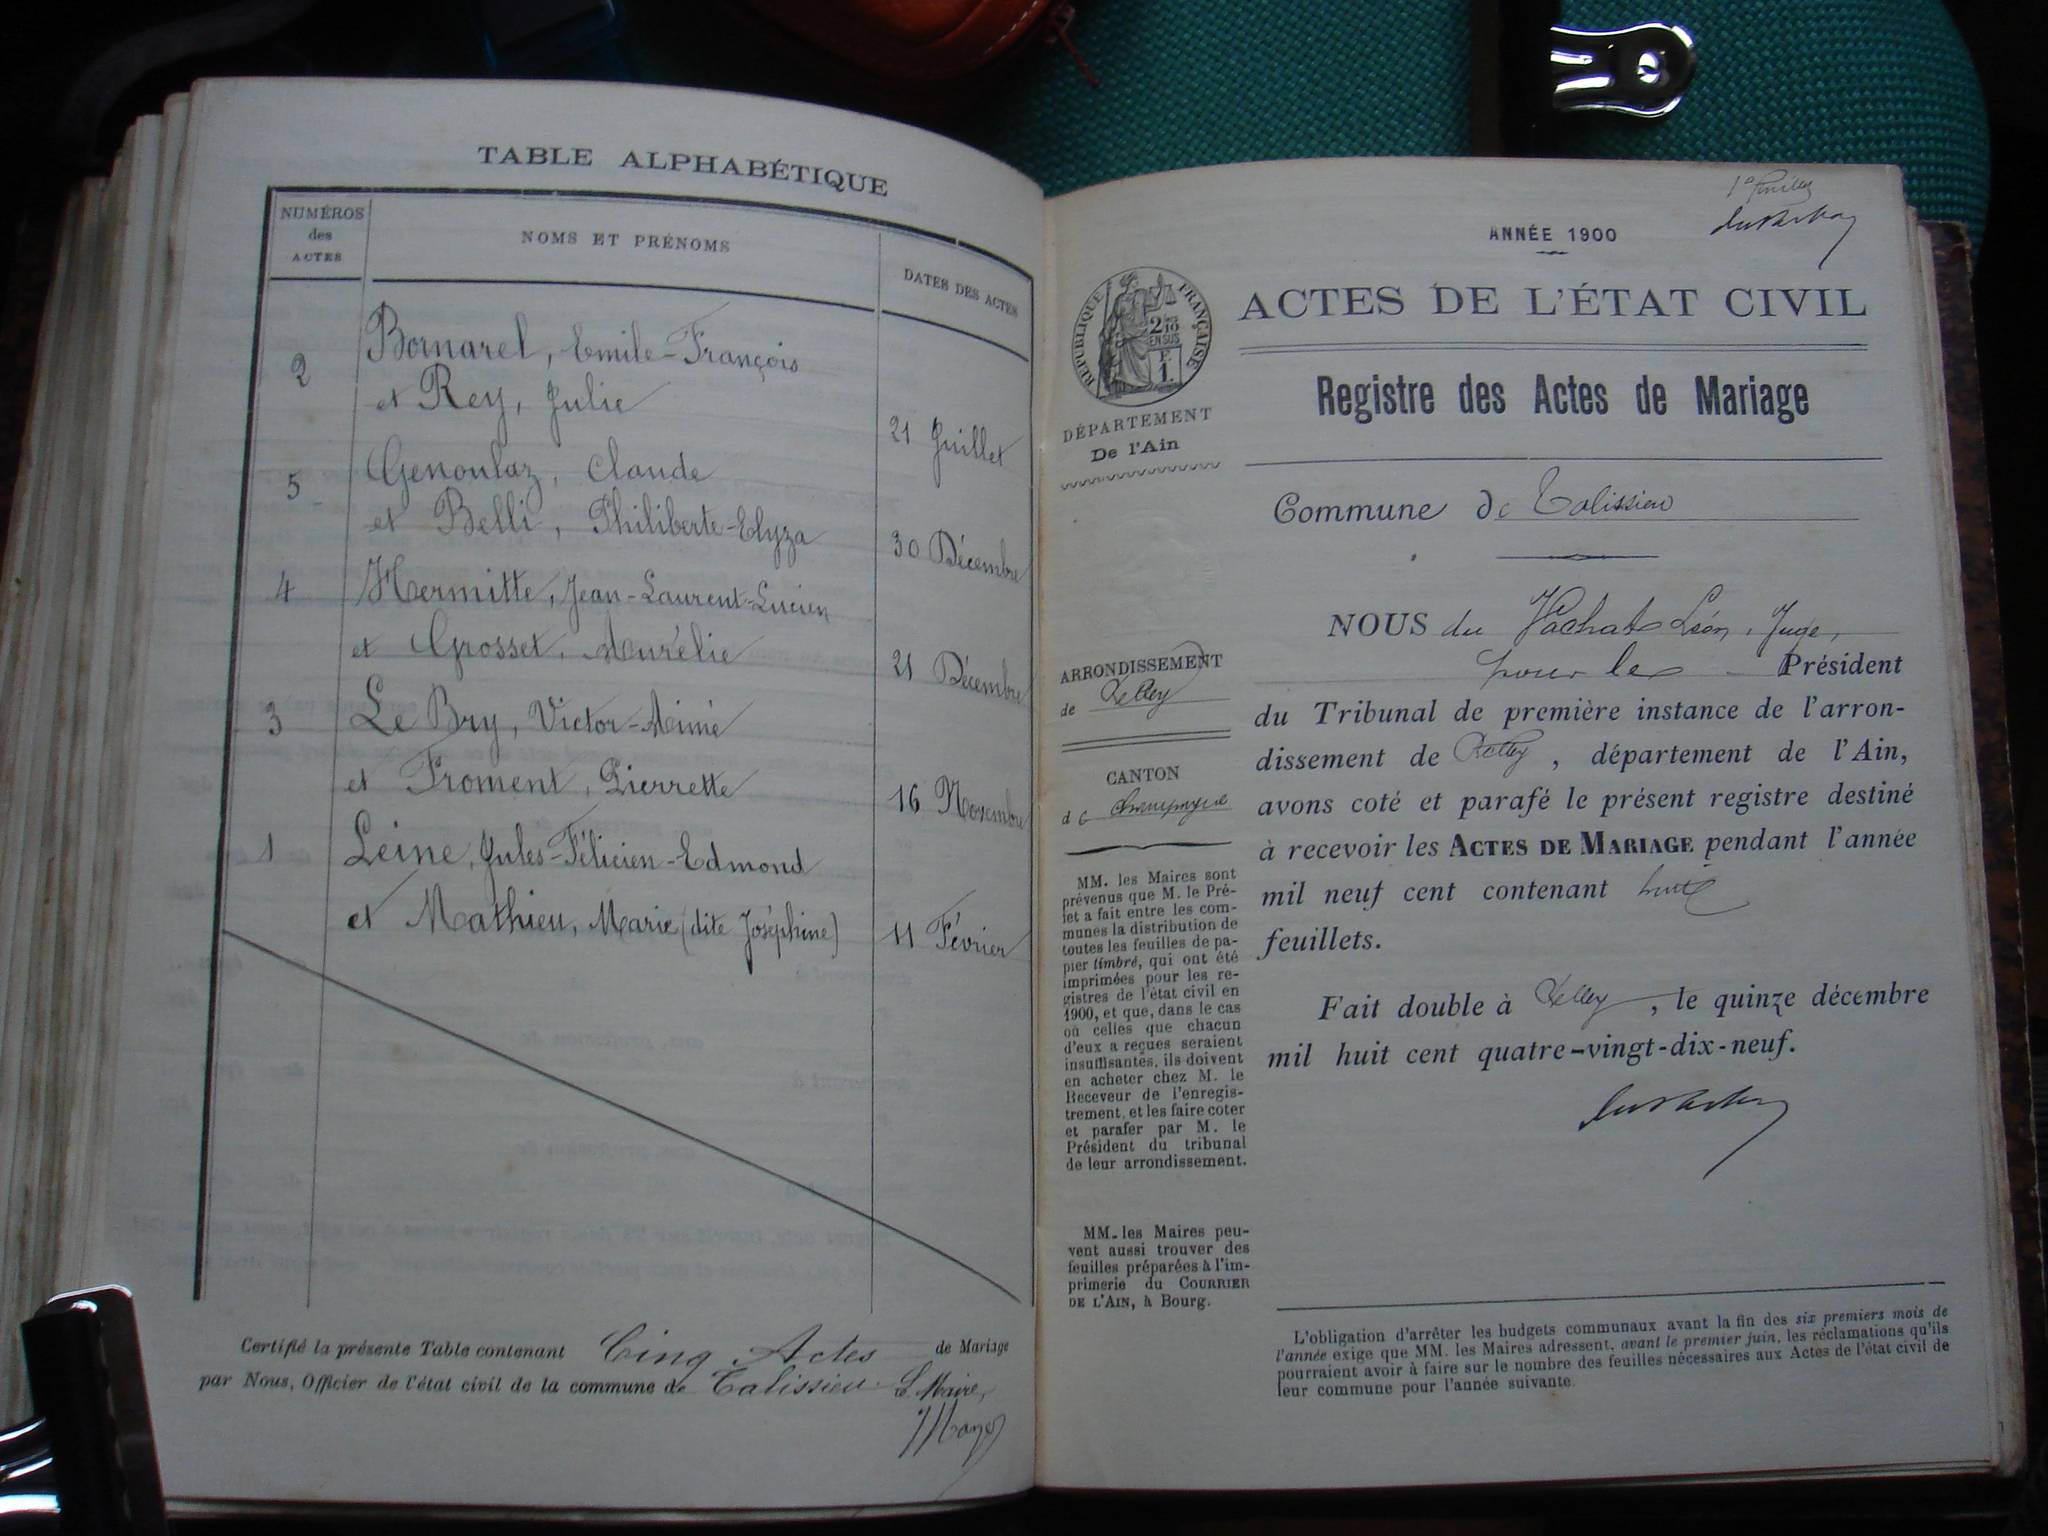 TABLE ALPHABÉTIQUE
NUMÉROS des ACTES
NOMS ET PRÉNOMS
DATES DES ACTES
2 Bornarel, Emile-François
et Rey, Julie 21 Juillet
5 Genoulaz, Claude
et Belli, Philiberte-Elyza 30 Décembre
4 Hermitte, Jean-Laurent-Lucien
et Grosset, Aurélie 21 Décembre
3 Le Bry, Victor-Aimé
et Froment, Pierrette 16 Novembre
1 Leine, Jules-Félicien-Edmond
et Mathieu, Marie (dite Joséphine) 11 Février
Certifié la présente Table contenant Cinq Actes de Mariage
par Nous, Officier de l'état civil de la commune de Talissieu. Le Maire,
ANNÉE 1900
ACTES DE L'ÉTAT CIVIL
RÉPUBLIQUE FRANÇAISE
2/10 EN SUS
F. 1.
DÉPARTEMENT
De l'Ain
Registre des Actes de Mariage
Commune de Talissieu
ARRONDISSEMENT
de Belley
CANTON
de Champagne
MM. les Maires sont
prévenus que M. le Pré-
fet a fait entre les com-
munes la distribution de
toutes les feuilles de pa-
pier timbré, qui ont été
imprimées pour les re-
gistres de l'état civil en
1900, et que, dans le cas
où celles que chacun
d'eux a reçues seraient
insuffisantes, ils doivent
en acheter chez M. le
Receveur de l'enregis-
trement, et les faire coter
et parafer par M. le
Président du tribunal
de leur arrondissement.
MM. les Maires peu-
vent aussi trouver des
feuilles préparées à l'im-
primerie du COURRIER
DE L'AIN, à Bourg.
NOUS du Vachat Léon, Juge,
pour le Président
du Tribunal de première instance de l'arron-
dissement de Belley, département de l'Ain,
avons coté et parafé le présent registre destiné
à recevoir les ACTES DE MARIAGE pendant l'année
mil neuf cent contenant huit
feuillets.
Fait double à Belley, le quinze décembre
mil huit cent quatre-vingt-dix-neuf.
L'obligation d'arrêter les budgets communaux avant la fin des six premiers mois de
l'année exige que MM. les Maires adressent, avant le premier juin, les réclamations qu'ils
pourraient avoir à faire sur le nombre des feuilles nécessaires aux Actes de l'état civil de
leur commune pour l'année suivante.